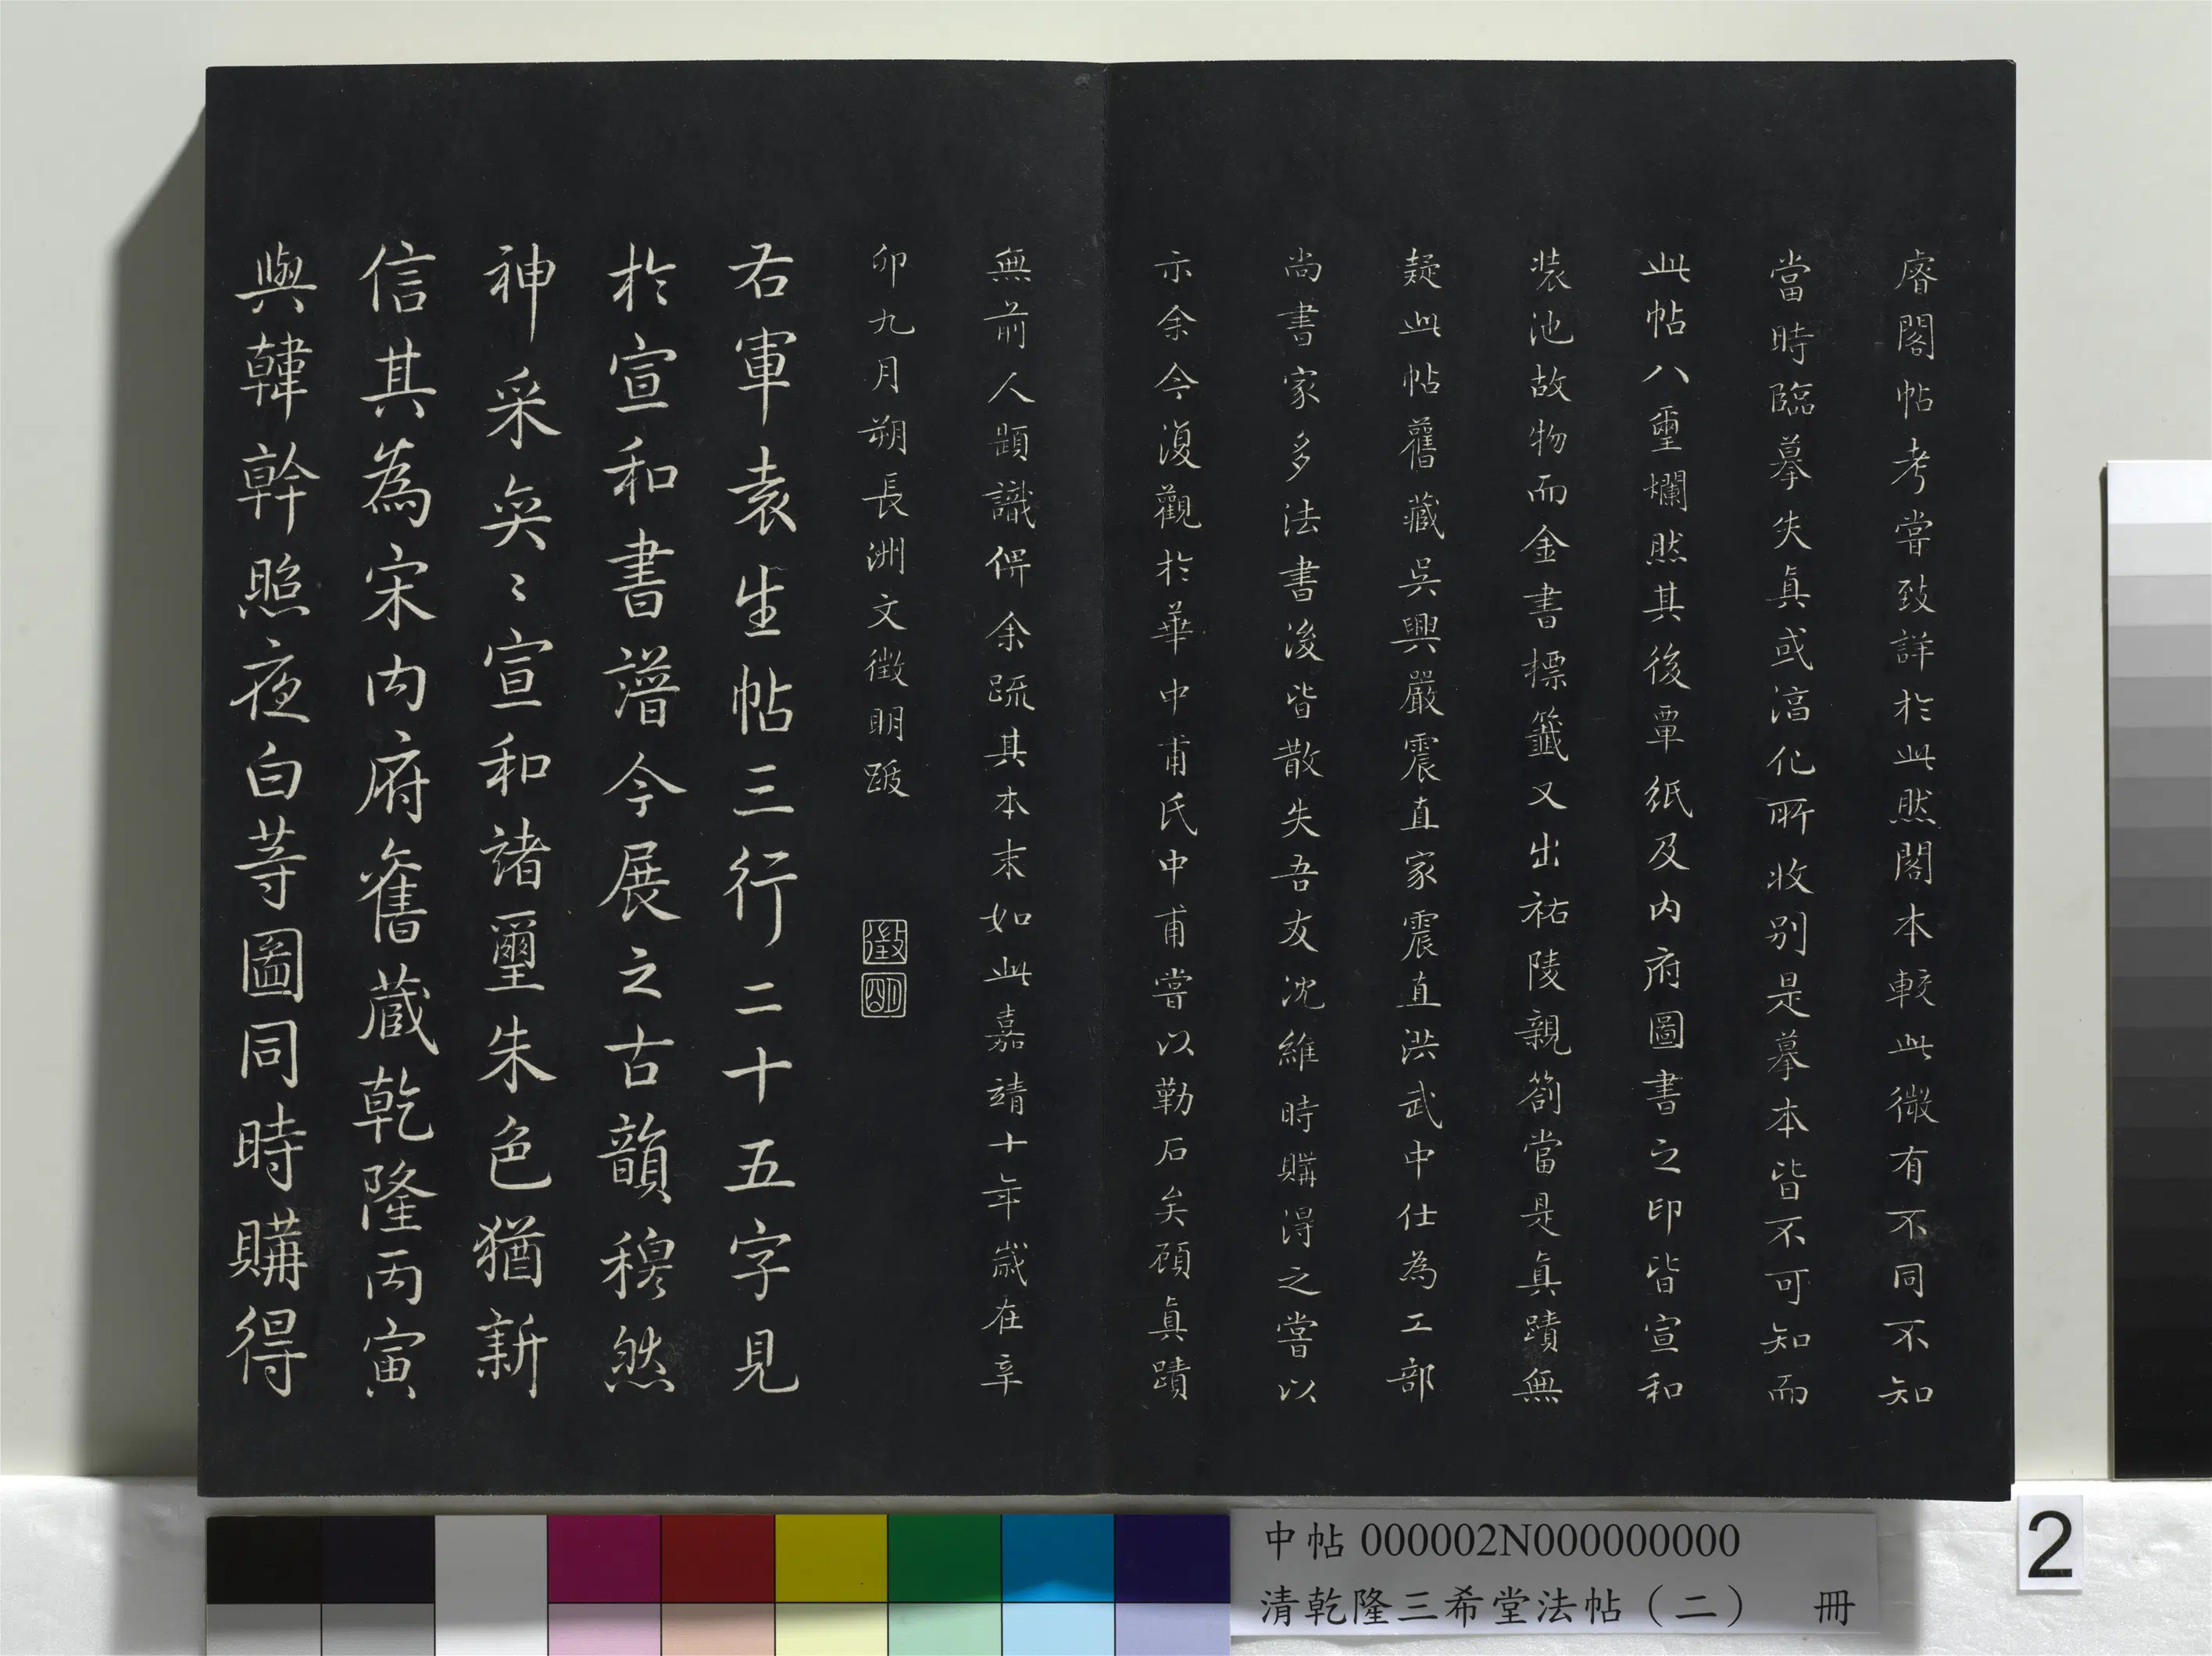 睿閣帖考嘗致詳於此然閣本較此微有不同不知
當時臨摹失真或淳化所收別是摹本皆不可知而
此帖八璽爛然其後覃紙及内府圖書之印皆宣和
裝池故物而金書標籤又出祐陵親劄當是真蹟無
疑此帖舊藏吳興嚴震直家震直洪武中仕為工部
尚書家多法書後皆散失吾友沈維時購得之嘗以
示余今復觀於華中甫氏中甫嘗以勒石矣顧真蹟
無前人題識俾余疏其本末如此嘉靖十年歲在辛
卯九月朔長洲文徵明跋
徵
明
右軍袁生帖三行二十五字見
於宣和書譜今展之古韻穆然
神采奕〻宣和諸璽朱色猶新
信其為宋内府舊藏乾隆丙寅
與韓幹照夜白等圖同時購得
中帖 000002N000000000
清乾隆三希堂法帖（二） 冊
2